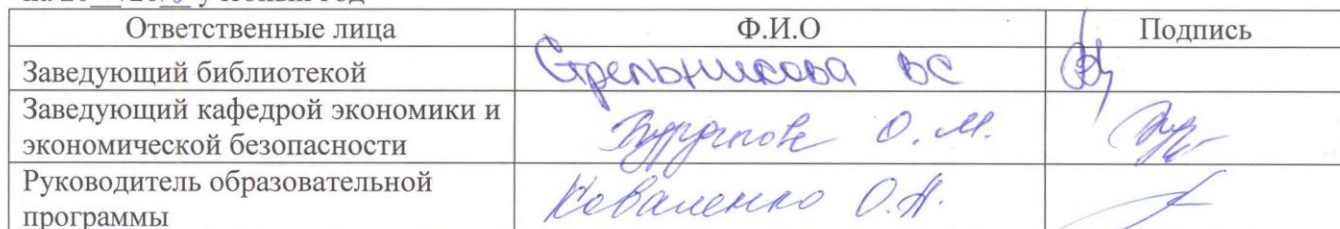 учебный год
Ответственные лица Ф.И.О Подпись
Заведующий библиотекой Стрельникова ВС
Заведующий кафедрой экономики и
экономической безопасности О.М.
Руководитель образовательной
программы Коваленко О.А.